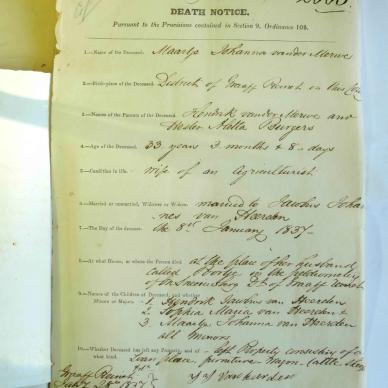 DEATH NOTICE.
Pursuant to the Provisions contained in Section 9, Ordinance 105.
1.—Name of the Deceased, Maartje Johanna van der Merwe
2.—Birth-place of the Deceased, District of Graaff Reinet in this
3.—Names of the Parents of the Deceased, Hendrik van der Merwe and
Hester Burgers
4.—Age of the Deceased, 33 years 3 months & 8 days
5.—Condition in life, wife of an Agriculturist
6.—Married or unmarried, Widower or Widow, married to Johan
nes van Heerden
7.—The Day of the decease, the 8th January 1837
8.—At what House, or where the Person died at the place of her husband
called in the
of of Graaff
9.—Names of the Children of Deceased, and whether
Minors or Majors. 1. Hendrik van Heerden
2. Sophia Maria van Heerden &
3 Maartje Johanna van Heerden
all Minors
10.—Whether Deceased has left any Property, and of
what kind. left Property consisting of a
place, furniture Wagon Cattle
Graaff Reinet
28th 1837
van heerden